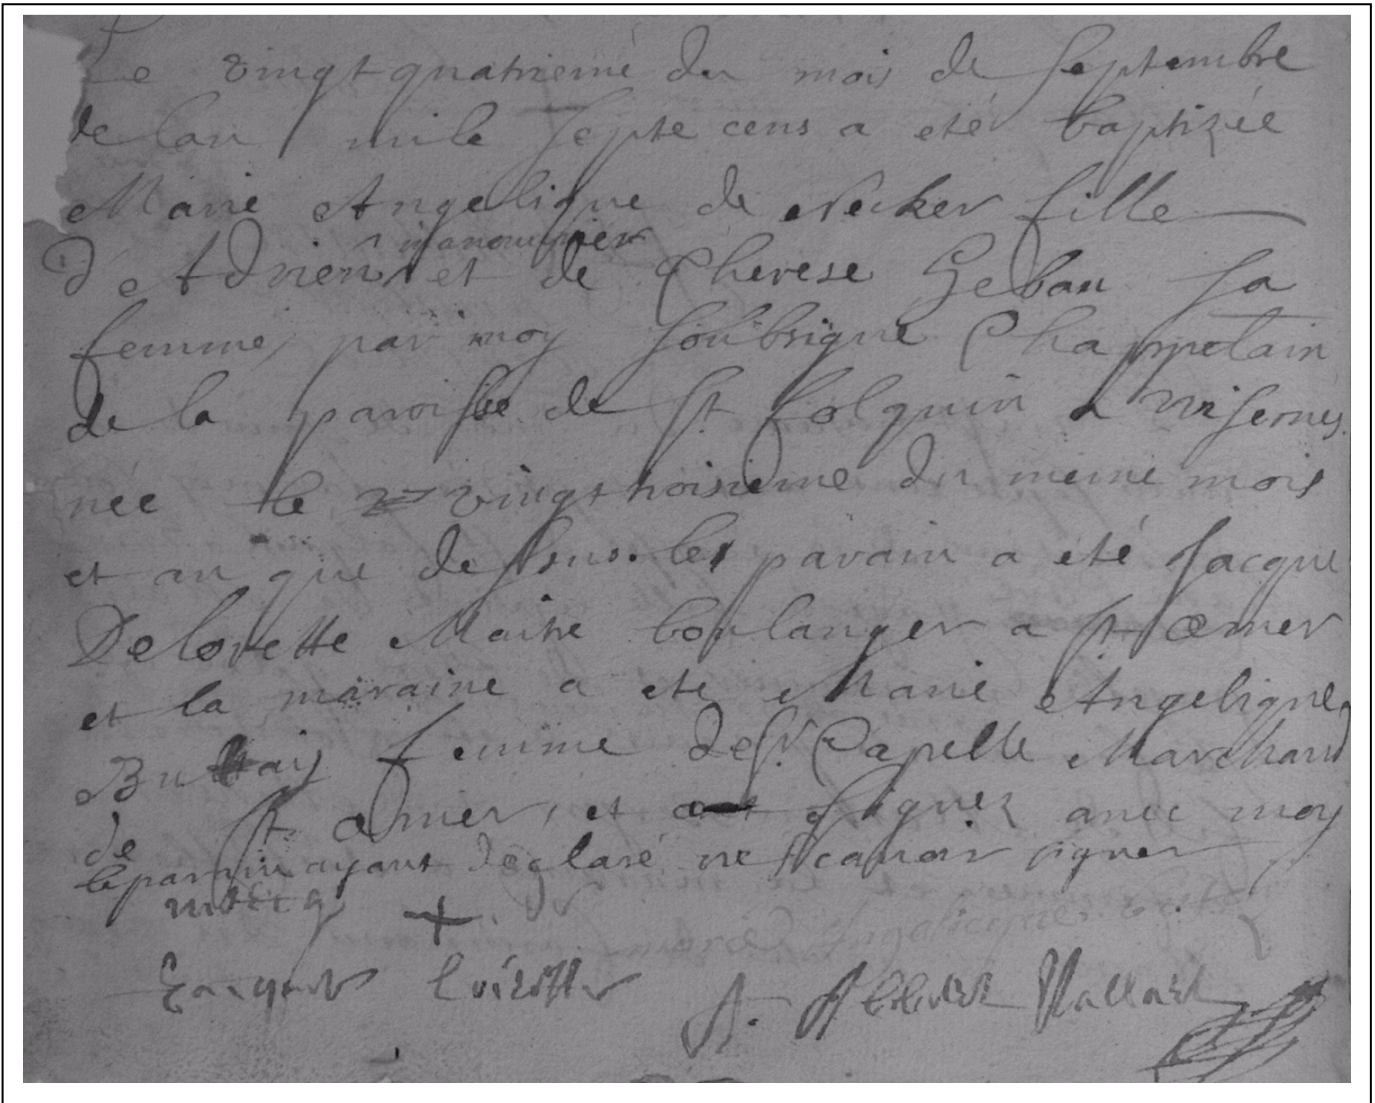 Le vingt quatrieme du mois de septembre
de lan mile septe cens a eté baptizée
Marie Angelique de Necker fille
manouvrier
d'Adrien et de Therese Geban sa
femme par moy soubsigne Chappelain
de la paroisse de st folquin a Wisernes
née le vingt troisieme du meme mois
et an que dessus. le parain a été Jacque
Delorette Maitre boulanger a st Omer
et la maraine a ete Marie Angelique
femme de sr. Capelle Marchand
de st omer, et ont signez avec moy
le parain ayant declaré ne scavoir signer
+
Marie Angelicque
Vallart